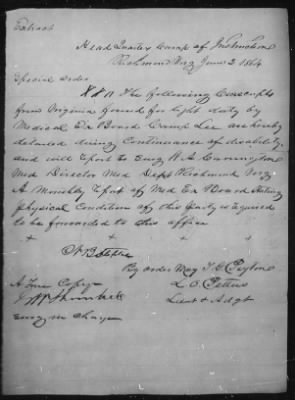 Extract
Head Quarters Camp of Instruction
Richmond Va June 3 1864
Special Order
The following Conscripts
from Virginia found for light duty by
Medical Ex Board Camp Lee are hereby
detailed during Continuance of disability
and will report to Surg W. A. Carrington
Med Director Med Dept Richmond Va
A Monthly Report of Med Ex Board stating
physical Condition of this party is required
to be forwarded to this office
+ + + + +
By order Maj T. G. Peyton
L. O. Pettus
A True Copy Lieut & Adgt
Surg in Charge